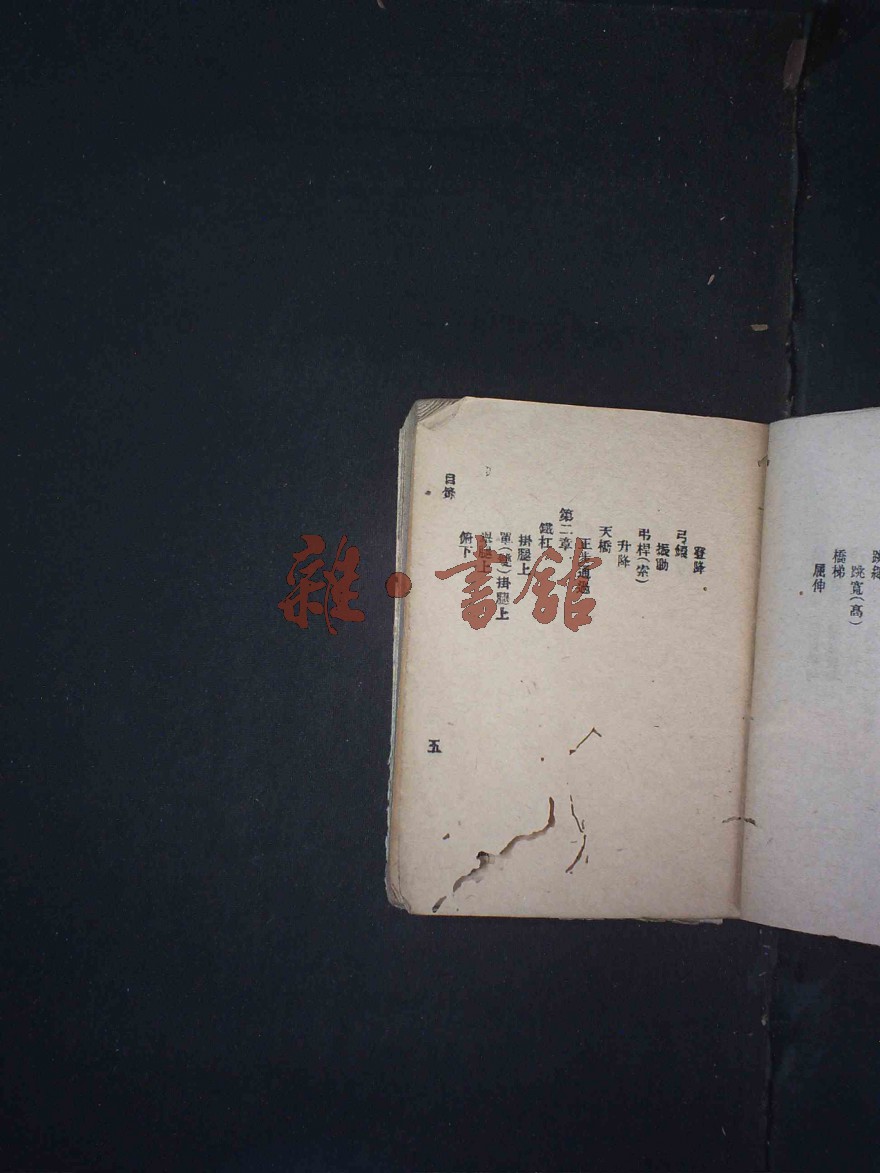 橋梯
跳寬(高)
屈伸
登降
弓繩
振動
弔桿(索)
升降
天橋
正步通過
第二章
鐵杠
掛腿上
單(雙)掛腿上
俯下
目錄
五
雜·書館